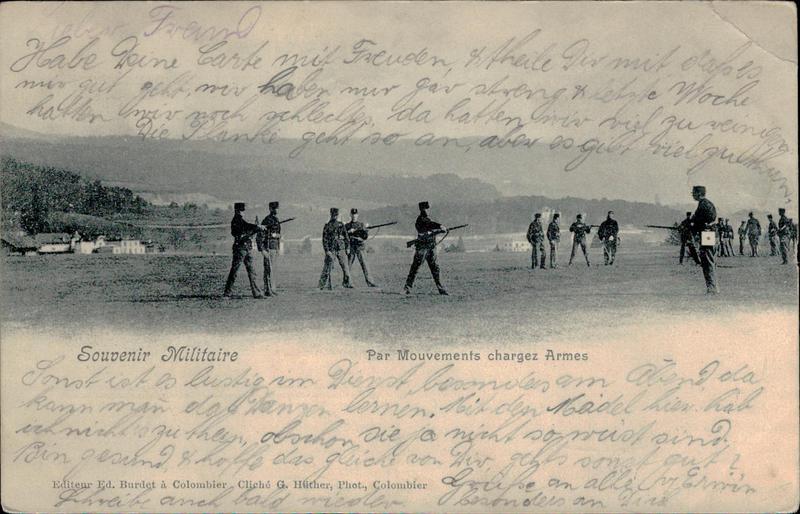 Lieber Freund
Habe Deine Carte mit Freuden, & theile Dir mit daß es
mir gut geht, wir haben nur gar streng & letzte Woche
hatten wir noch schlechter, da hatten wir viel zu reinigen
Die Flanke geht so an, aber es gibt viel zu thun,
Souvenir Militaire
Par Mouvements chargez Armes
Sonst ist es lustig im Dienst, besonders am Abend, da
kann man das Tanzen lernen. Mit den Mädel hier hab
ich nichts zu thun, obschon sie ja nicht so weist sind.
Bin gesund, & hoffe das gleiche von Dir, gehts sonst gut?
Editeur Ed. Burdet à Colombier. Cliché G. Hüther, Phot., Colombier
Grüße an alle Erwin
Schreibe auch bald wieder besonders an Dich